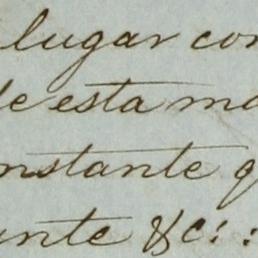 lugar con
de esta ma
nstante q
ante &c: :